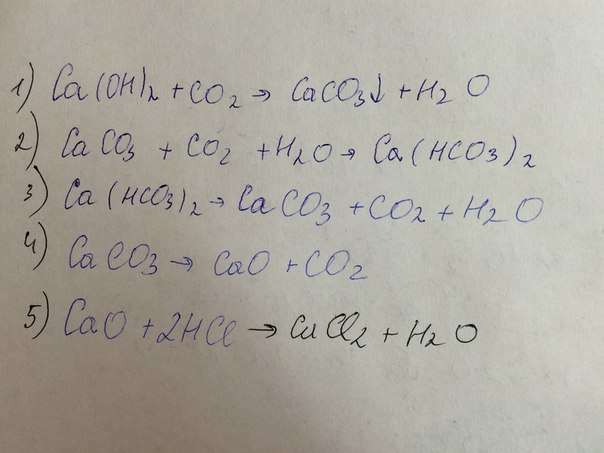 1) Ca(OH)2 + CO2 → CaCO3↓ + H2O
2) CaCO3 + CO2 + H2O → Ca(HCO3)2
3) Ca(HCO3)2 → CaCO3 + CO2 + H2O
4) CaCO3 → CaO + CO2
5) CaO + 2HCl → CaCl2 + H2O